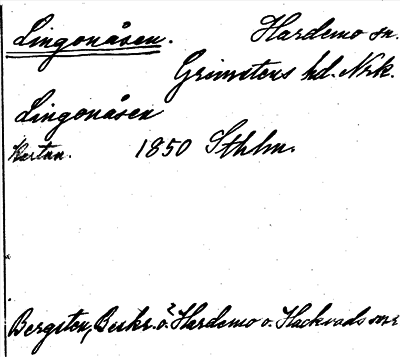 Lingonåsen. Hardemo sn.
Grimstens hd. Nrk.
Lingonåsen
kartan. 1850 Sthlm.
Bergsten, Beskr. ö. Hardemo o. Hackvads snr